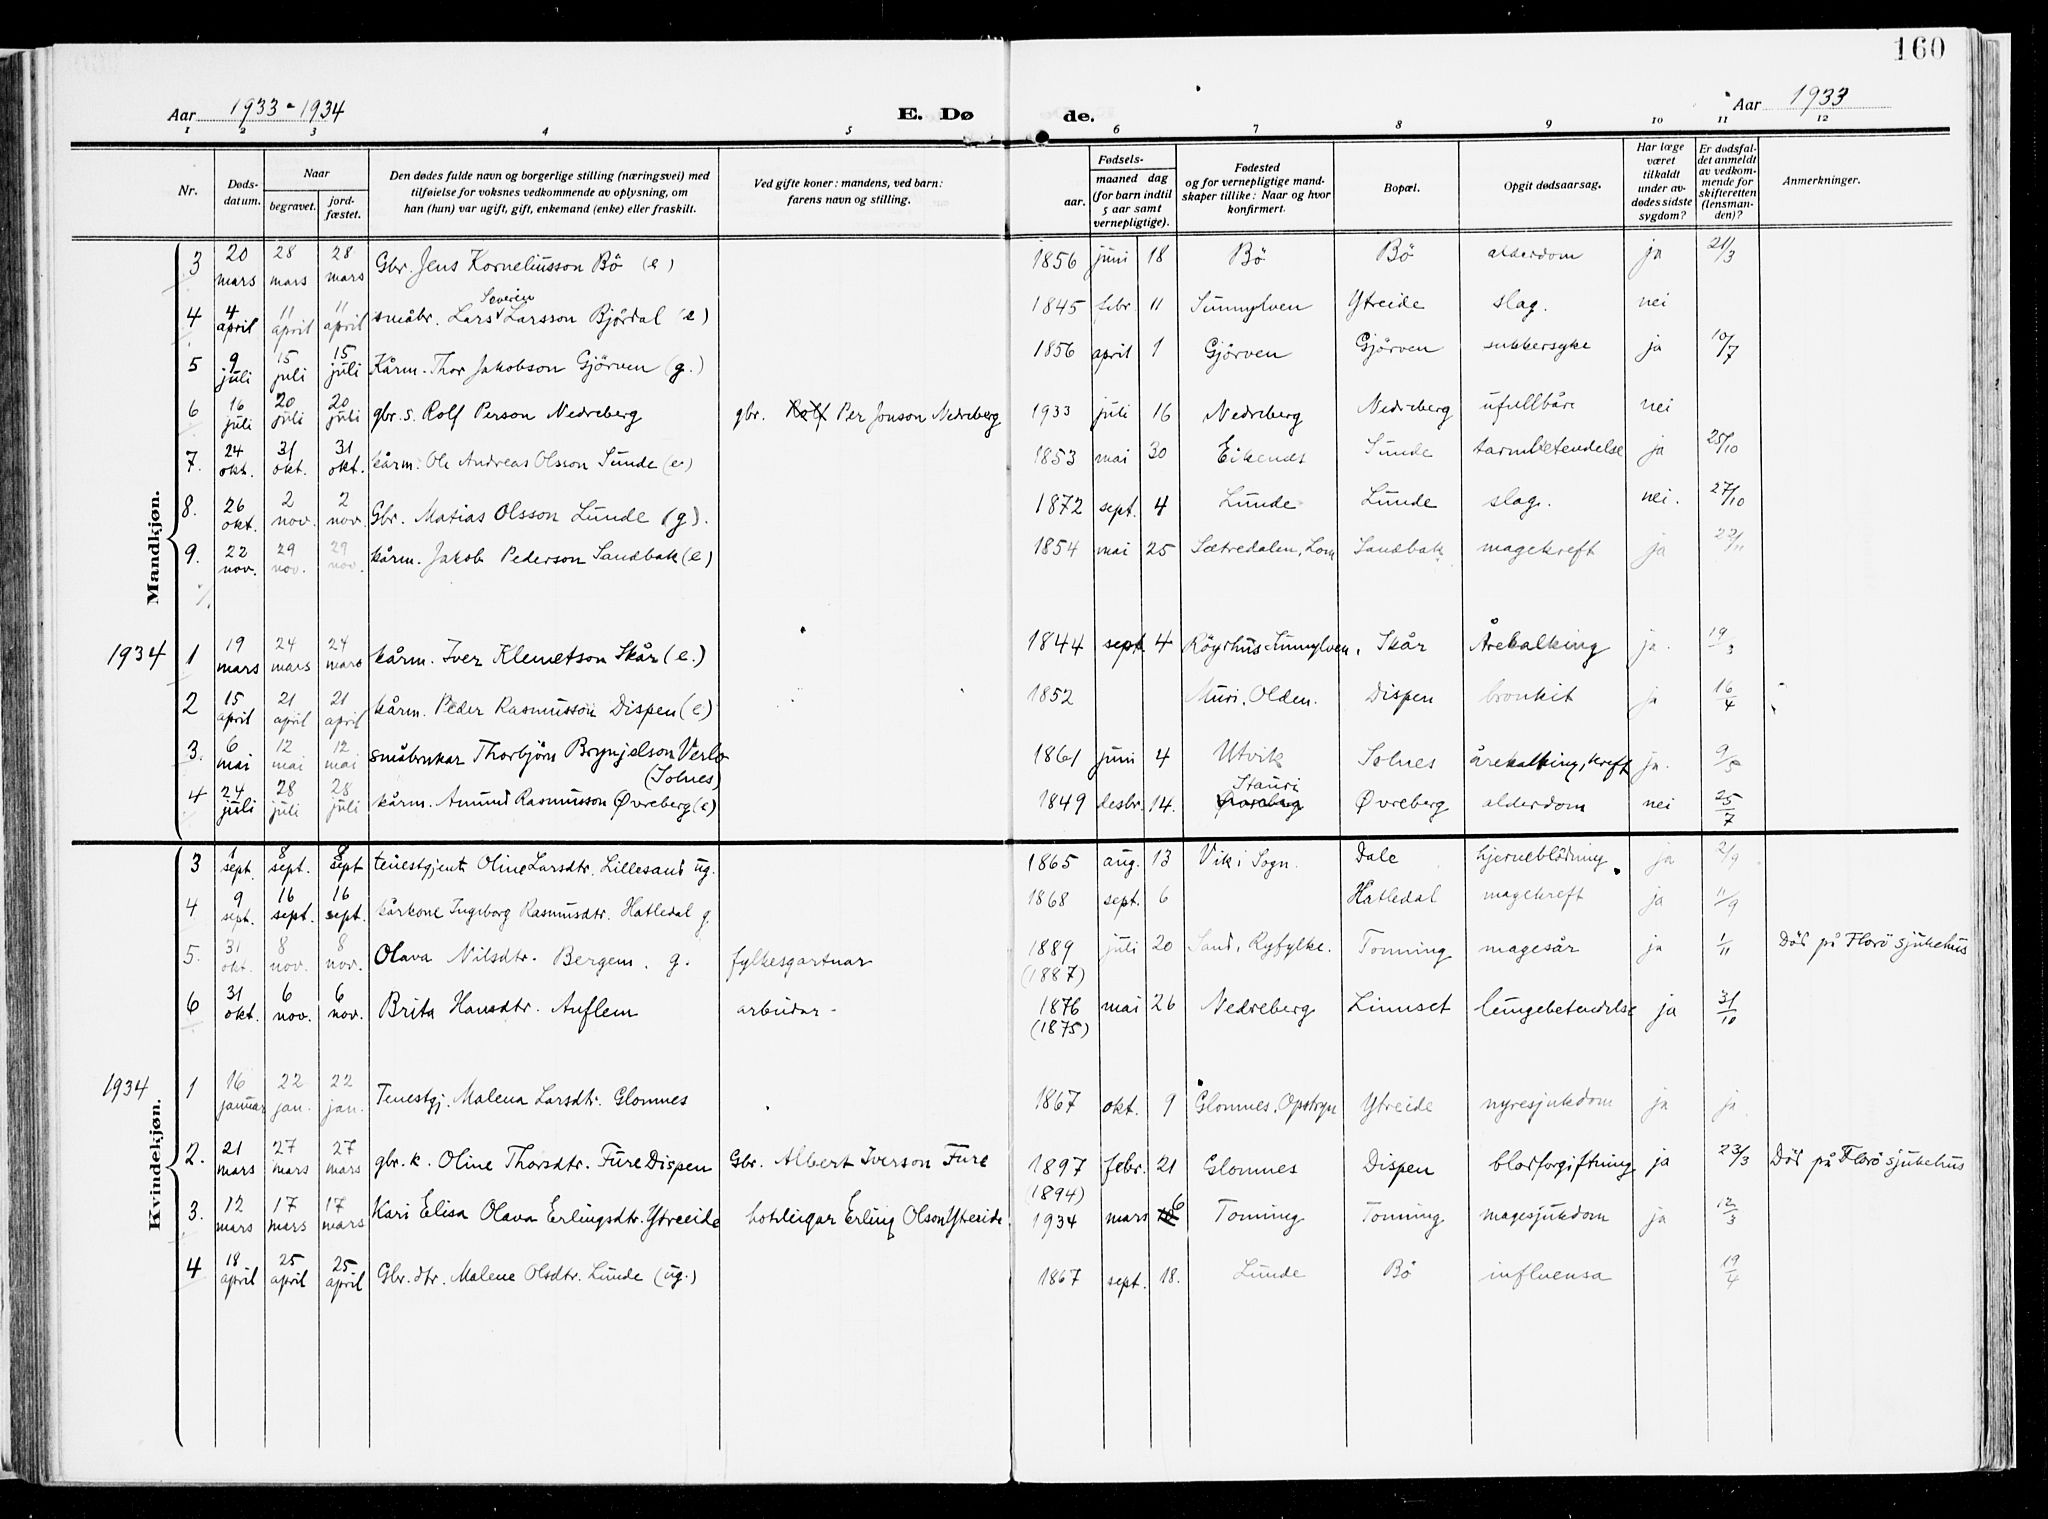 160
Aar 1933-1934
E. Dø
de.
Aar 1933
1 2 3 4 5 6 7 8 9 10 11 12
Nr.
Døds-
datum.
Naar
begravet.
jord-
fæstet.
Den dødes fulde navn og borgerlige stilling (næringsvei) med
tilføielse for voksnes vedkommende av oplysning, om
han (hun) var ugift, gift, enkemand (enke) eller fraskilt.
Ved gifte koner: mandens, ved barn:
farens navn og stilling.
Fødsels-
aar.
maaned dag
(for barn indtil
5 aar samt
vernepligtige).
Fødested
og for vernepligtige mand-
skaper tillike: Naar og hvor
konfirmert.
Bopæl.
Opgit dødsaarsag.
Har læge
været
tilkaldt
under av-
dødes sidste
sygdom?
Er dødsfal-
det anmeldt
av vedkom-
mende for
skifteretten
(lensman-
den)?
Anmerkninger.
Mandkjøn.
3 20 mars 28 mars 28 mars Gbr. Jens Korneliusson Bö (e) 1856 juni 18 Bö Bö alderdom ja 21/3
4 4 april 11 april 11 april småbr. Lars Severin Larsson Bjørdal (e) 1845 febr. 11 Sunnylven Ytreide slag. nei
5 9 juli 15 juli 15 juli Kårm. Thor Jakobson Gjörven (g.) 1856 april 1 Gjörven Gjörven sukkersyke ja 10/7
6 16 juli 20 juli 20 juli gbr. s. Rolf Person Nedreberg gbr. Rolf Per Jonson Nedreberg 1933 juli 16 Nedreberg Nedreberg ufullbåre nei
7. 24 okt. 31 okt. 31 okt. kårm. Ole Andreas Olsson Sunde (e) 1853 mai 30 Eikenes Sunde tarmbetendelse ja 25/10
8. 26 okt. 2 nov. 2 nov. Gbr. Matias Olsson Lunde (g). 1872 sept. 4 Lunde Lunde slag. nei. 27/10
9. 22 nov. 29 nov. 29 nov. kårm. Jakob Pederson Sandbak (e) 1854 mai 25 Sætredalen, Lom Sandbak magekreft ja 22/11
1934 1 19 mars 24 mars 24 mars kårm. Iver Klemetson Skår (e.) 1844 sept 4 Röyrhus Sunnylven. Skår Årekalking ja. 19/3
2 15 april 21 april 21 april kårm. Peder Rasmusson Dispen (e) 1852 Muri, Olden. Dispen bronkit ja 16/4
3. 6 mai 12 mai 12 mai småbrukar Thorbjörn Brynjelson Verlo (Solnes) 1861 juni 4 Utvik Solnes årekalking, kreft ja. 9/5
4 24 juli 28 juli 28 juli kårm. Amund Rasmusson Øvreberg (e) 1849 desbr. 14. Øvreberg Stauri Øvreberg alderdom nei 25/7
Kvindekjøn.
3 1 sept. 8 sept. 8 sept tenestgjent Oline Larsdtr. Lillesand ug. 1865 aug. 13 Vik i Sogn. Dale hjerneblödning ja 2/9
4 9 sept. 16 sept. 16 sept. kårkone Ingeborg Rasmusdtr. Hatledal g. 1868 sept. 6 Hatledal magekreft ja 11/9
5. 31 okt. 8 nov. 8 nov. Olava Nilsdtr. Bergem. g. fylkesgartnar 1889 (1887) juli 20 Sand, Ryfylke. Tonning magesår ja 1/11 Död på Florö sjukehus
6 31 okt. 6 nov. 6 nov. Brita Hansdtr. Auflem arbeidar 1876 (1875) mai 26 Nedreberg Linnset lungebetendelse ja 31/10
1934 1 16 januar 22 jan. 22 jan. Tenestgj. Malena Larsdtr. Glomnes 1867 okt. 9 Glomnes, Opstryn Ytreide nyresjukdom ja ja
2. 21 mars 27 mars 27 mars gbr. k. Oline Thorsdtr. Fure Dispen Gbr. Albert Iverson Fure 1897 (1894) febr. 21 Glomnes Dispen blodforgiftning ja 23/3 Död på Florö sjukehus
3. 12 mars 17 mars 17 mars Kari Elisa Olava Erlingsdtr. Ytreeide hoteleigar Erling Olson Ytreeide. 1934 mars 6 Tonning Tonning magesjukdom ja 12/3
4 18 april 25 april 25 april Gbr. dtr. Malene Olsdtr. Lunde (ug.) 1867 sept. 18. Lunde Bö influensa 19/4